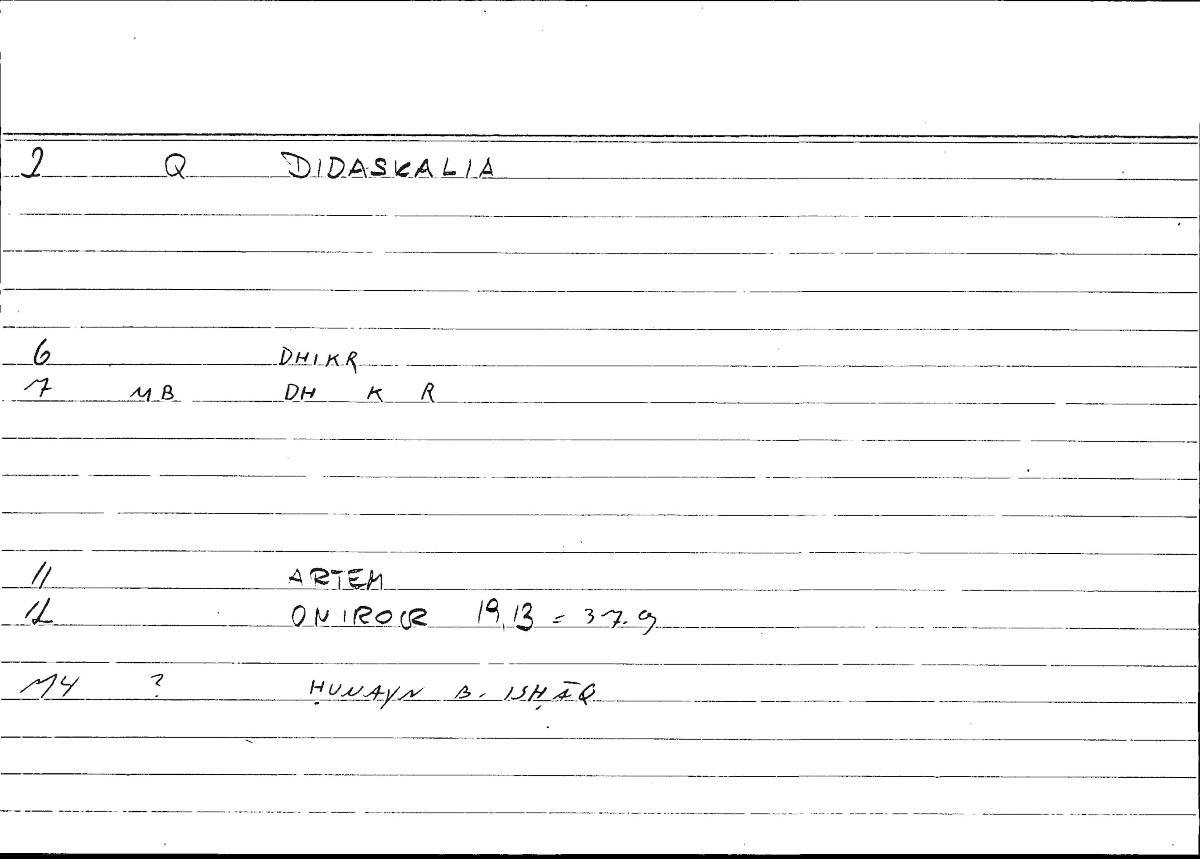 2 Q DIDASKALIA
6 DHIKR
7 MB DH K R
11 ARTEM
12 ONIROCR 19,13 = 37.9
M4 ? ḤUNAYN B. ISḤĀQ